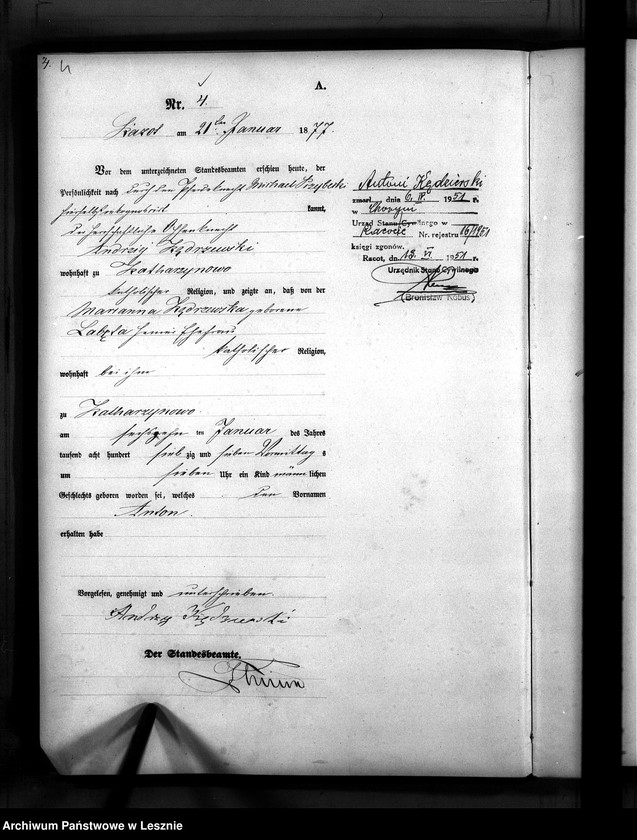 4.
A.
Nr. 4.
Racot am 21ten Januar 1877.
Vor dem unterzeichneten Standesbeamten erschien heute, der
Persönlichkeit nach durch den Pferdeknecht Michael
kannt,
der herrschaftliche Ochsenknecht
Andrzej Kędrzewski
wohnhaft zu Katharzynowo
katholischer Religion, und zeigte an, daß von der
Marianna Kędrzewska geborene
seiner Ehefrau
katholischer Religion,
wohnhaft bei ihm
zu Katharzynowo
am sechzehn ten Januar des Jahres
tausend acht hundert sieb zig und sieben Vormittag s
um sieben Uhr ein Kind männ lichen
Geschlechts geboren worden sei, welches den Vornamen
Anton.
erhalten habe
Vorgelesen, genehmigt und unterschrieben.
Andrzej Kędrzewski
Der Standesbeamte.
Antoni Kędzierski
zmarł dnia 6. IV. 1951 r.
w Choryni
Urząd Stanu Cywilnego w
Racocie Nr. rejestru 16/1951
księgi zgonów.
Racot, dn. 18. VI 1951 r.
Urzędnik Stanu Cywilnego
(Bronisław Kobus)
Archiwum Państwowe w Lesznie